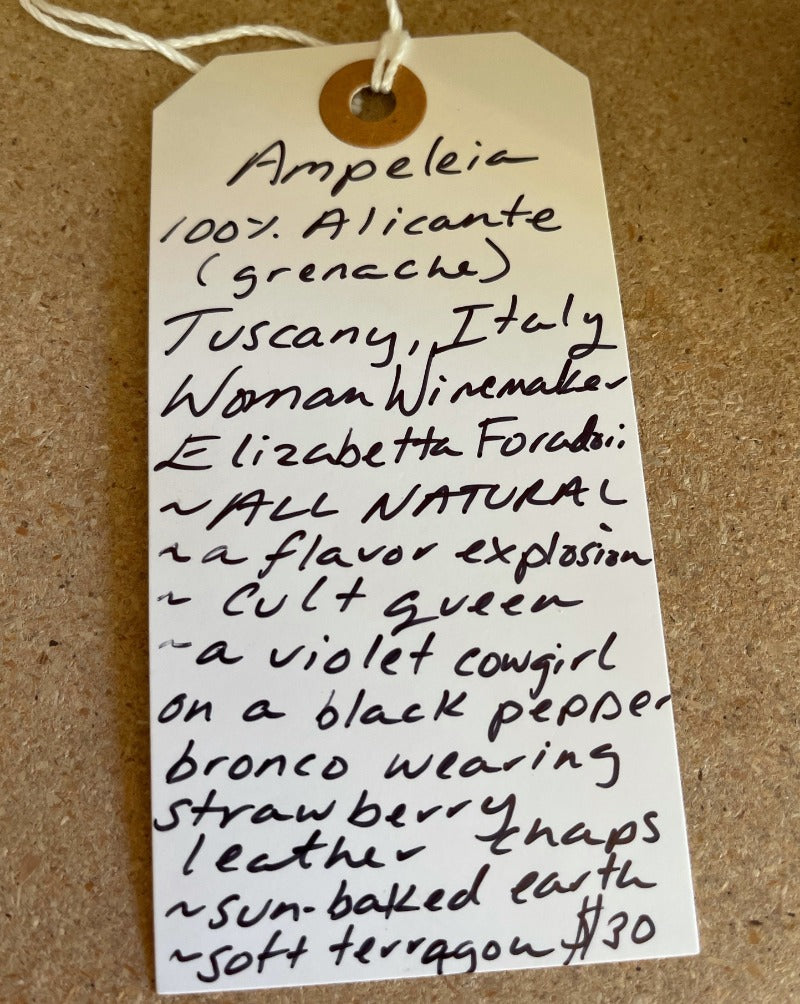 Ampeleia
100% Alicante
(grenache)
Tuscany, Italy
Woman Winemaker
Elizabetta Foradori:
~ALL NATURAL
~a flavor explosion
~ cult queen
~a violet cowgirl
on a black pepper
bronco wearing
strawberry
leather chaps
~sun-baked earth
~soft terragon $30